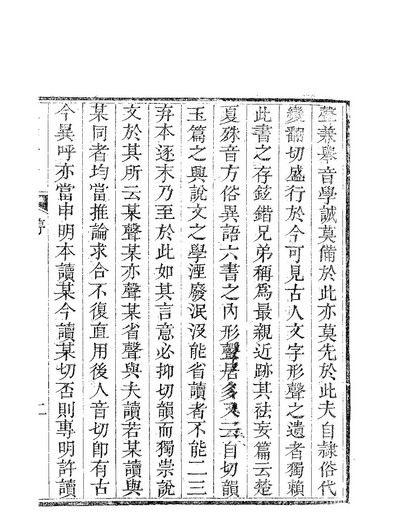 聲兼舉音學誠莫備於此亦莫先於此夫自隸俗代
變翻切盛行於今可見古人文字形聲之遺者獨賴
此書之存鉉鍇兄弟稱為最親近跡其祛妄篇云楚
夏殊音方俗異語六書之內形聲居多又云自切韻
玉篇之興說文之學湮廢泯沒能省讀者不能二三
弃本逐末乃至於此如其言意必抑切韻而獨崇說
文於其所云某聲某亦聲某省聲與夫讀若某讀與
某同者均當推論求合不復直用後人音切即有古
今異呼亦當申明本讀某今讀某切否則專明許讀
序
二